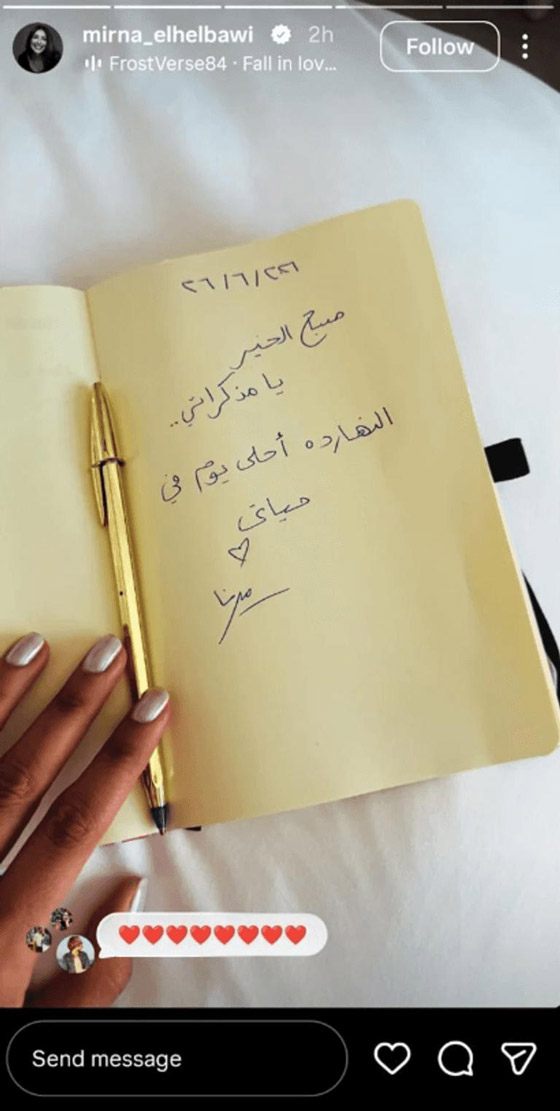 mirna_elhelbawi 2h
Follow
FrostVerse84 · Fall in lov...
٢٦/٦/٢٠٢٦
صباح الخير
يا مذكراتي..
النهارده أحلى يوم في
حياتي
♡
ميرنا
❤️❤️❤️❤️❤️❤️❤️❤️
Send message